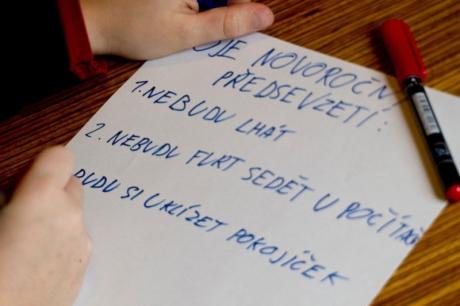 OJE NOVOROČN
PŘEDSEVZETÍ:
1. NEBUDU LHÁT
2. NEBUDU FURT SEDĚT U POČÍTAČ
BUDU SI UKLÍZET POKOJÍČEK